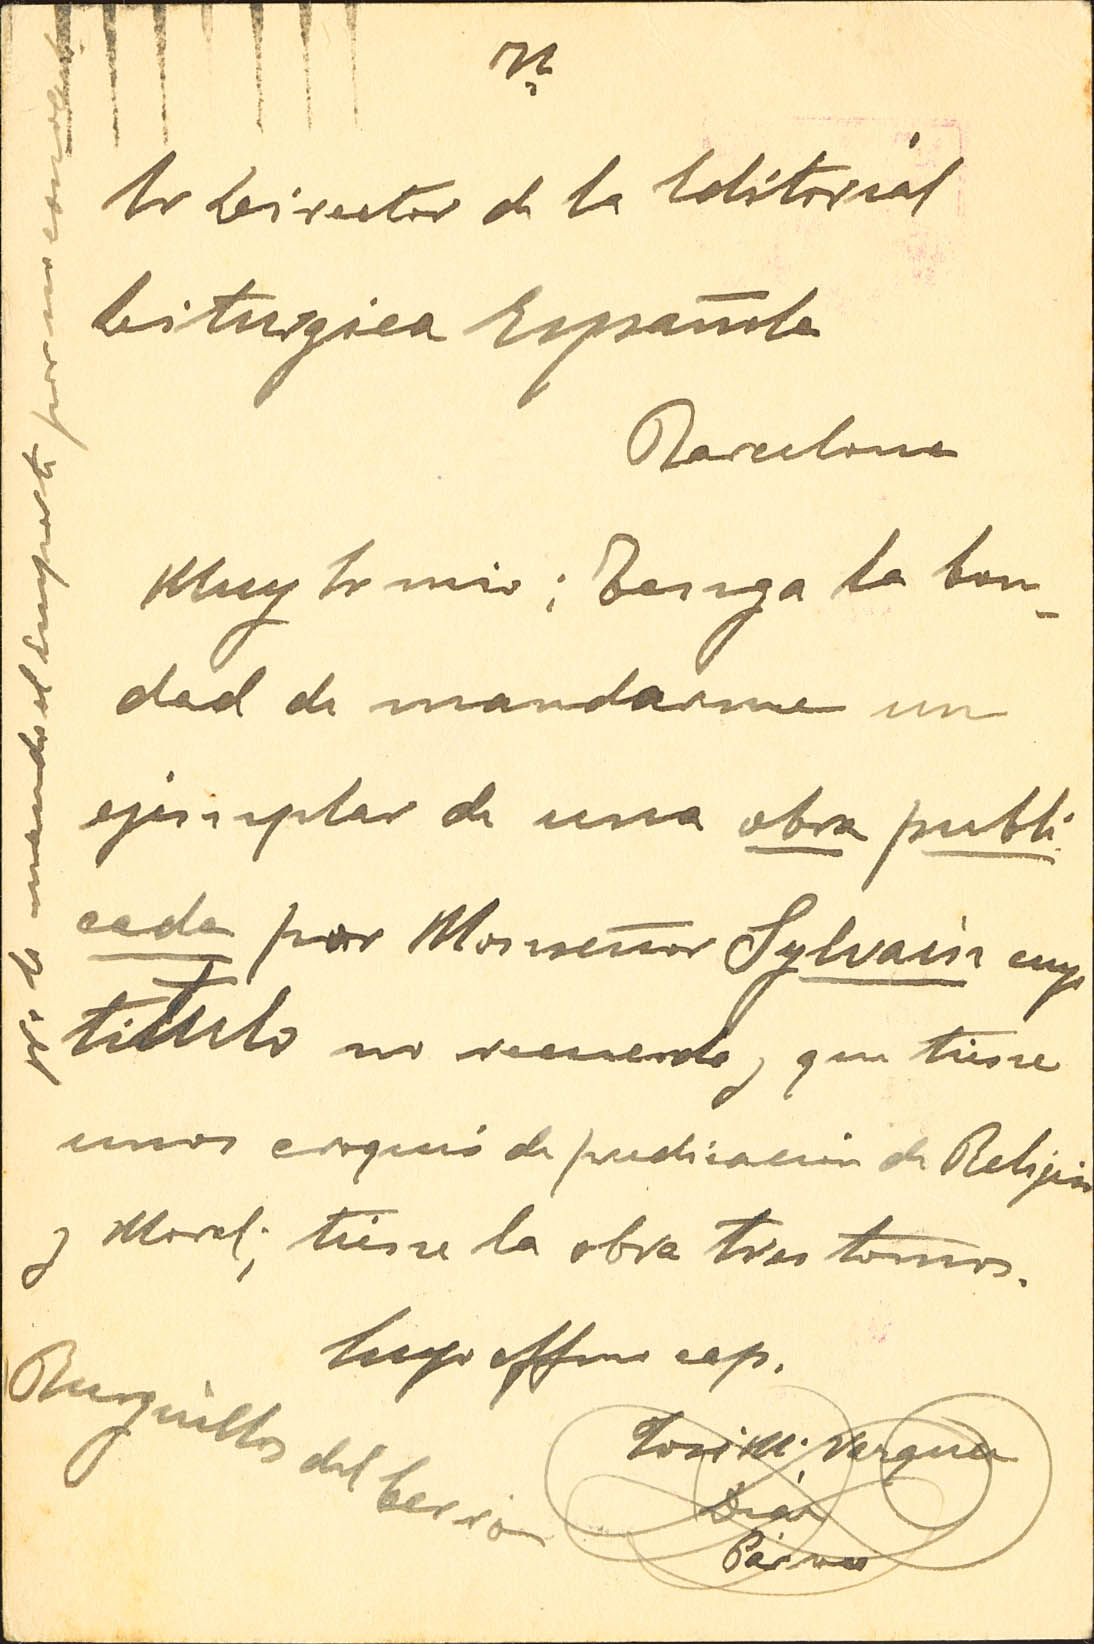 Sr Director de la Editorial
Liturgica Española
Barcelona
Muy Sr mio; Tenga la bon-
dad de mandarme un
ejemplar de una obra publi
cada por Monseñor Sylvain cuyo
titulo no recuerdo, que tiene
unos croquis de predicación de Religion
y Moral; tiene la obra tres tomos.
Suyo affmo cap.
Burguillos del Cerro
José M. Vazquez
Diaz
Párroco
le mando el importe por